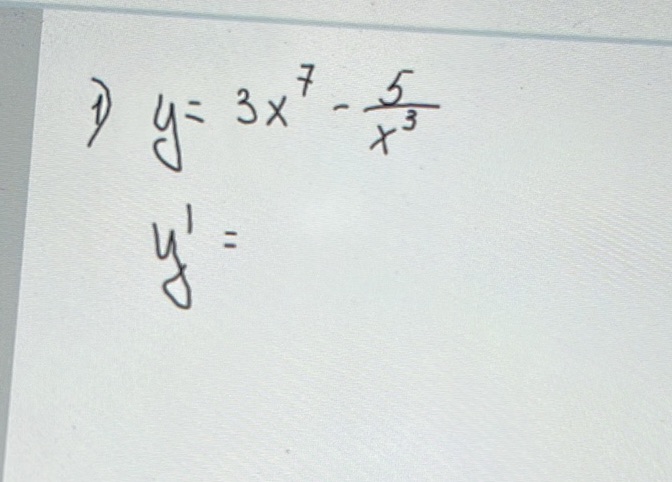 1) y = 3x⁷ - 5/x³
y' =